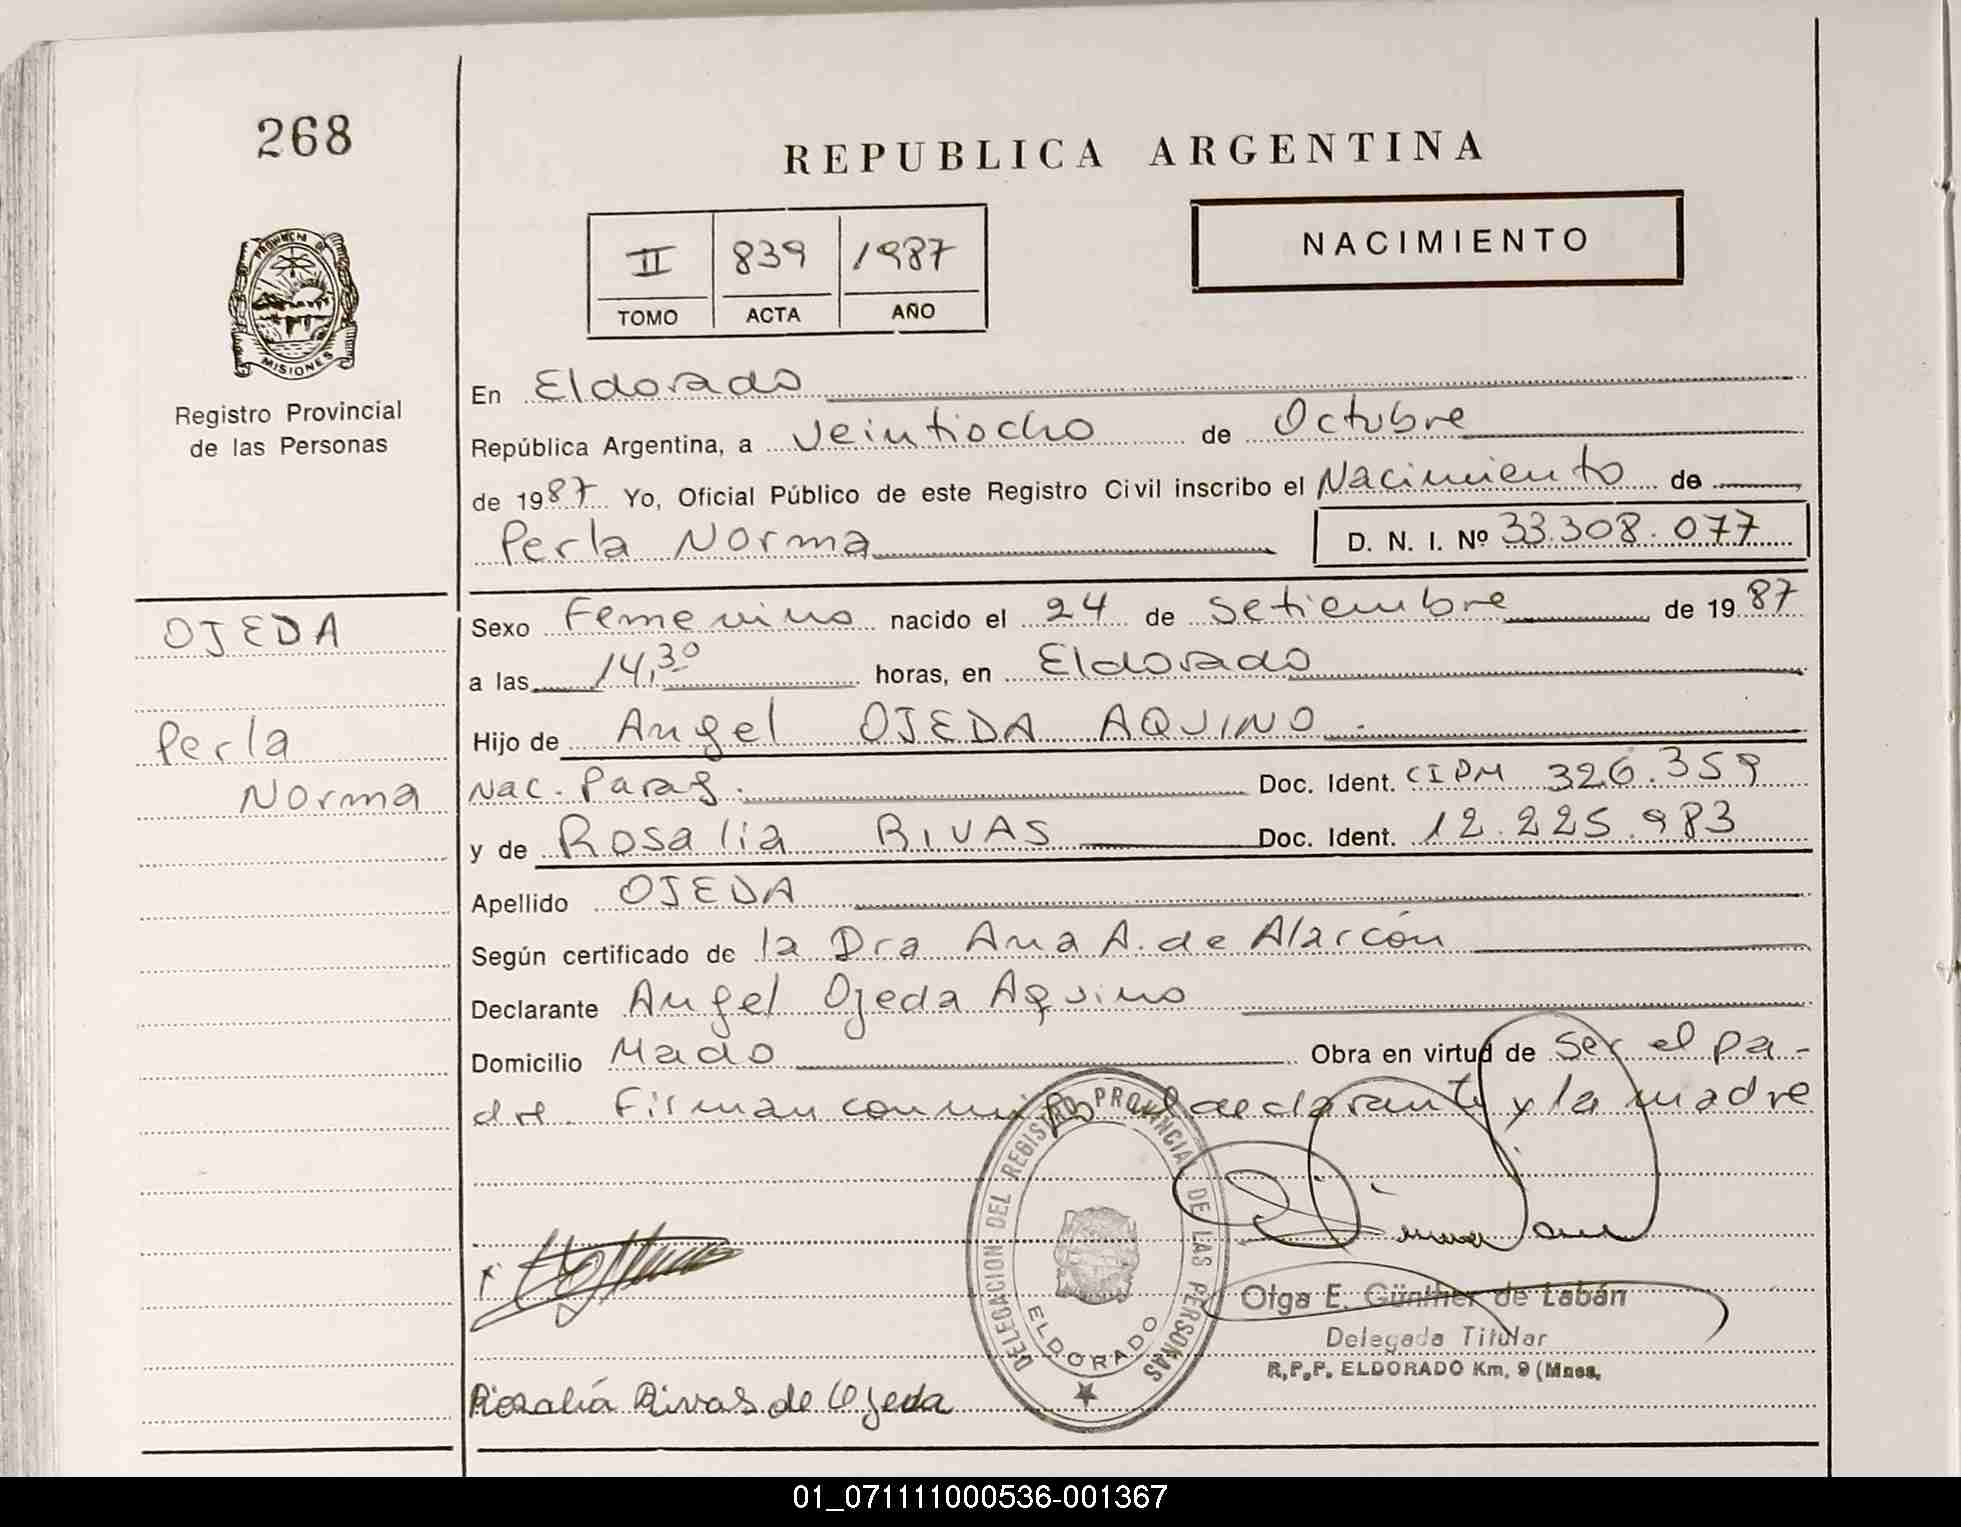 268
REPUBLICA ARGENTINA
PROVINCIA DE
MISIONES
Registro Provincial
de las Personas
II 839 1987
TOMO ACTA AÑO
NACIMIENTO
En Eldorado
República Argentina, a Veintiocho de Octubre
de 1987 Yo, Oficial Público de este Registro Civil inscribo el Nacimiento de
Perla Norma D. N. I. Nº 33.308.077
OJEDA
Perla
Norma
Sexo Femenino nacido el 24 de Setiembre de 1987
a las 14,30 horas, en Eldorado
Hijo de Angel OJEDA AQUINO.
Nac. Parag. Doc. Ident. CIPM 326.359
y de Rosalia RIVAS Doc. Ident. 12.225.983
Apellido OJEDA
Según certificado de la Dra Ana A. de Alarcón
Declarante Angel Ojeda Aquino
Domicilio Mado Obra en virtud de ser el pa-
dre. Firman conmigo el declarante y la madre
DELEGACION DEL REGISTRO PROVINCIAL DE LAS PERSONAS
ELDORADO
Olga E. Günther de Labán
Delegada Titular
R.P.P. ELDORADO Km. 9 (Mnes.
Rosalía Rivas de Ojeda
01_071111000536-001367